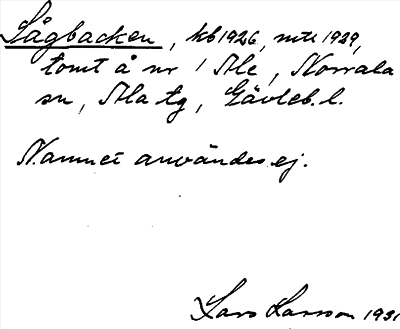 Lågbacken, kb 1926, mtl 1929,
tomt å nr 1 Ale, Norrala
sn, Ala tg, Gävleb. l.
Namnet användes ej.
Lars Larsson 1931